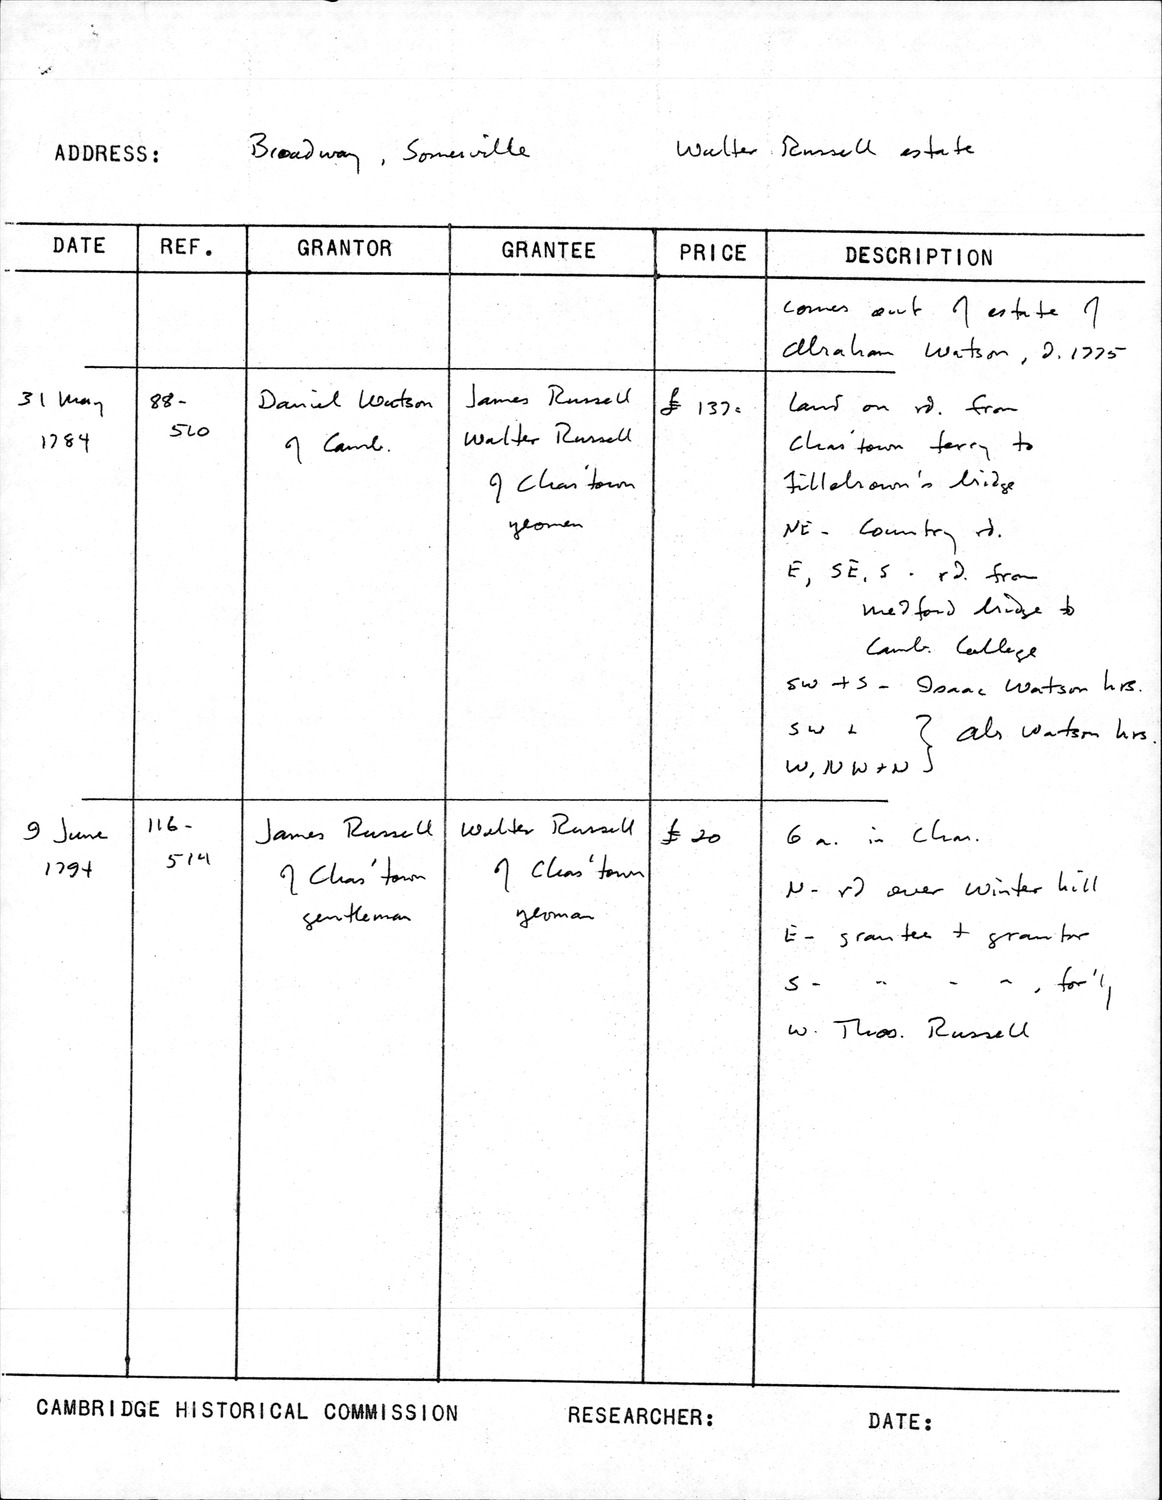 ADDRESS: Broadway, Somerville Walter Russell estate
DATE REF. GRANTOR GRANTEE PRICE DESCRIPTION
comes out of estate of
Abraham Watson, d. 1775
31 May 88- Daniel Watson James Russell £ 137. land on rd. from
1784 510 of Camb. Walter Russell Chas'town ferry to
of Chas'town Fillebrown's bridge
yeomen NE - Country rd.
E, SE, S - rd. from
Medford bridge to
Camb. College
SW + S - Isaac Watson hrs.
SW + } Abr Watson hrs.
W, NW + N
9 June 116- James Russell Walter Russell £ 20 6 a. in Chas.
1794 514 of Chas'town of Chas'town N - rd over Winter hill
gentleman yeoman E - grantee + grantor
S - " " ", for'ly
W. Thos. Russell
CAMBRIDGE HISTORICAL COMMISSION RESEARCHER: DATE: